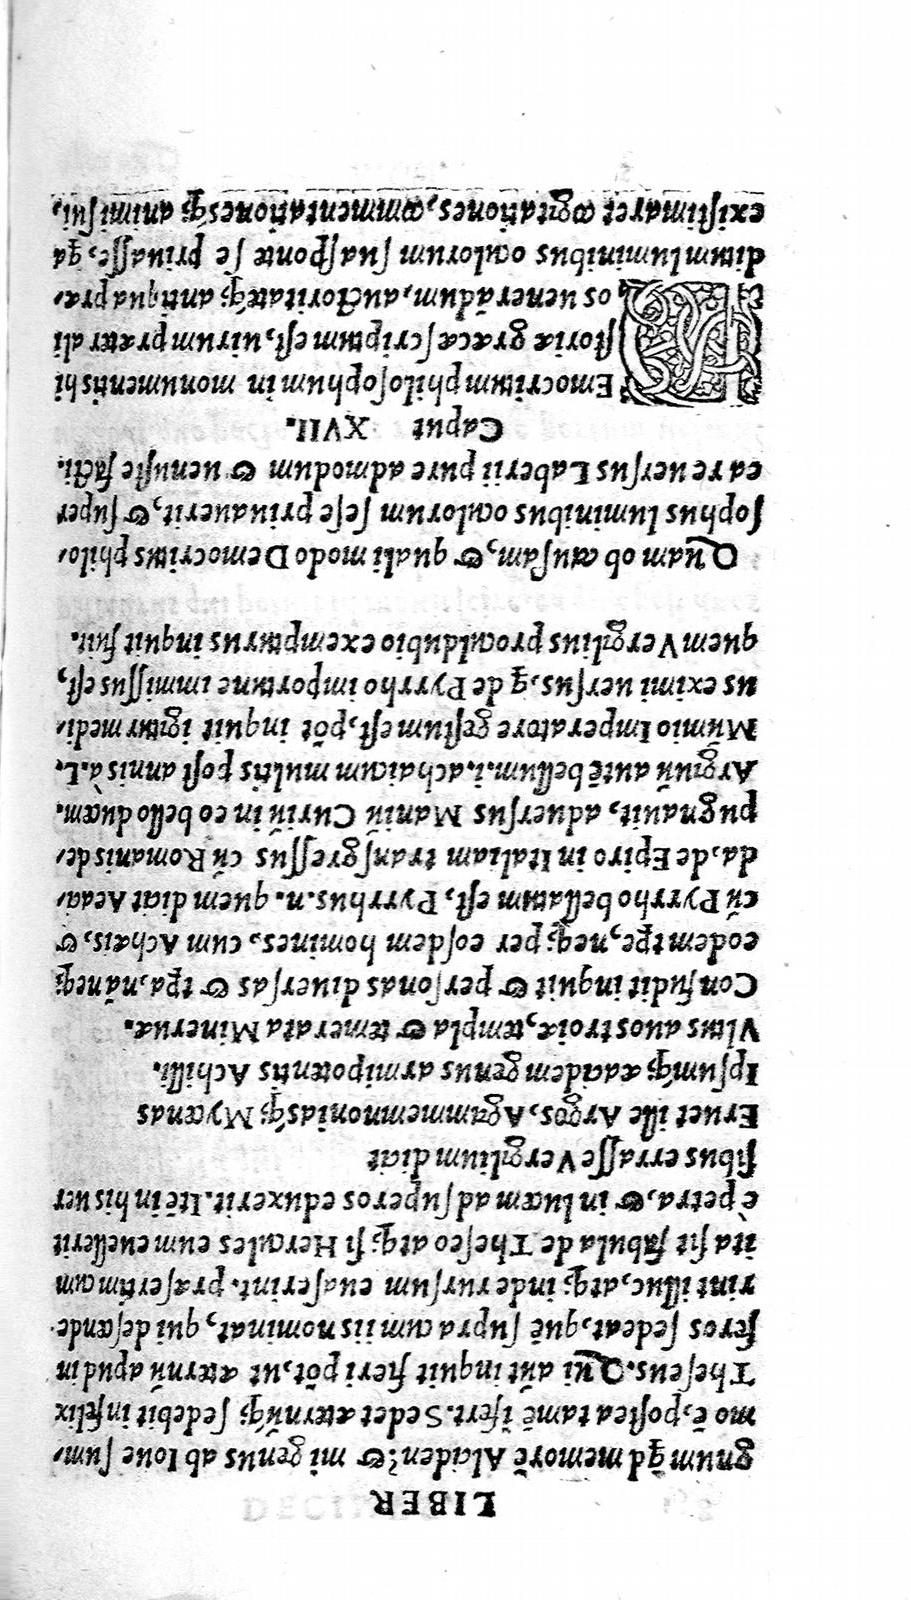 LIBER
gnum qd memorē Alciden? & mi genus ab Ioue sum-
mo ē, postea tamē īfert. Sedet æternúq; sedebit infelix
Theseus. Qui aūt inquit fieri pōt, ut æternū apud in
feros sedeat, quē supra cum iis nominat, qui descende-
rint illuc, atq; inde rursum euaserint. præsertim cum
ita sit fabula de Theseo atq; si Hercules eum euellerit
è petra, & in lucem ad superos eduxerit. Itē in his uer
sibus errasse Vergilium dicit
Eruet ille Argos, Agammemnoniasq; Mycenas
Ipsumq; æacidem genus armipotentis Achilli.
Vltus auos troiæ, templa & temerata Mineruæ.
Confudit inquit & personas diuersas & tpa, nā neq;
eodem tpe, neq; per eosdem homines, cum Achæis, &
cū Pyrrho bellatum est, Pyrrhus .n. quem dicit Aeaci-
da, de Epiro in Italiam transgressus cū Romanis de-
pugnauit, aduersus Maniū Curiū in eo bello ducem.
Argiuū autē bellum .i. achaicum multis post annis a. L.
Mūmio Imperatore gestum est, pōt inquit igitur medi-
us eximi uersus, q de Pyrrho importune immissus est,
quem Vergilius proculdubio exempturus inquit fuit.
Quam ob causam, & quali modo Democritus philo-
sophus luminibus oculorum sese priuauerit, & super
ea re uersus Laberii pure admodum & uenuste facti.
Caput XVII.
DEmocritum philosophum in monumentis hi
storiæ græcæ scriptum est, uirum præter ali
os uenerādum, auctoritateq; antiqua præ-
ditum luminibus oculorum sua sponte se priuasse, qa
existimaret cogitationes, commentationesq; animi sui,